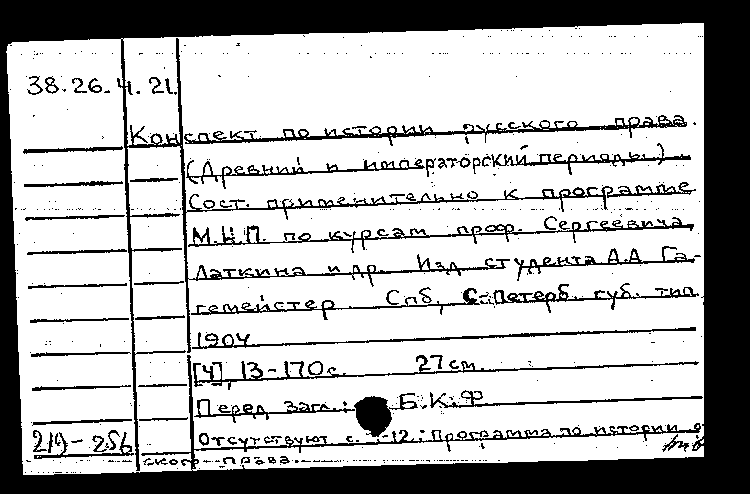 38.26.4.21.
Конспект по истории русского права.
(Древний и императорский периоды.)
Сост. применительно к программе
М.Н.П. по курсам проф. Сергеевича,
Латкина и др. Изд студента А.А. Га-
гемейстер. Спб, С.-Петерб. губ. тип
1904
[4], 13-170 с. 27 см.
Перед загл.: Б.К.Ф
219-256 Отсутствуют с. -12.: Программа по истории
ского права.